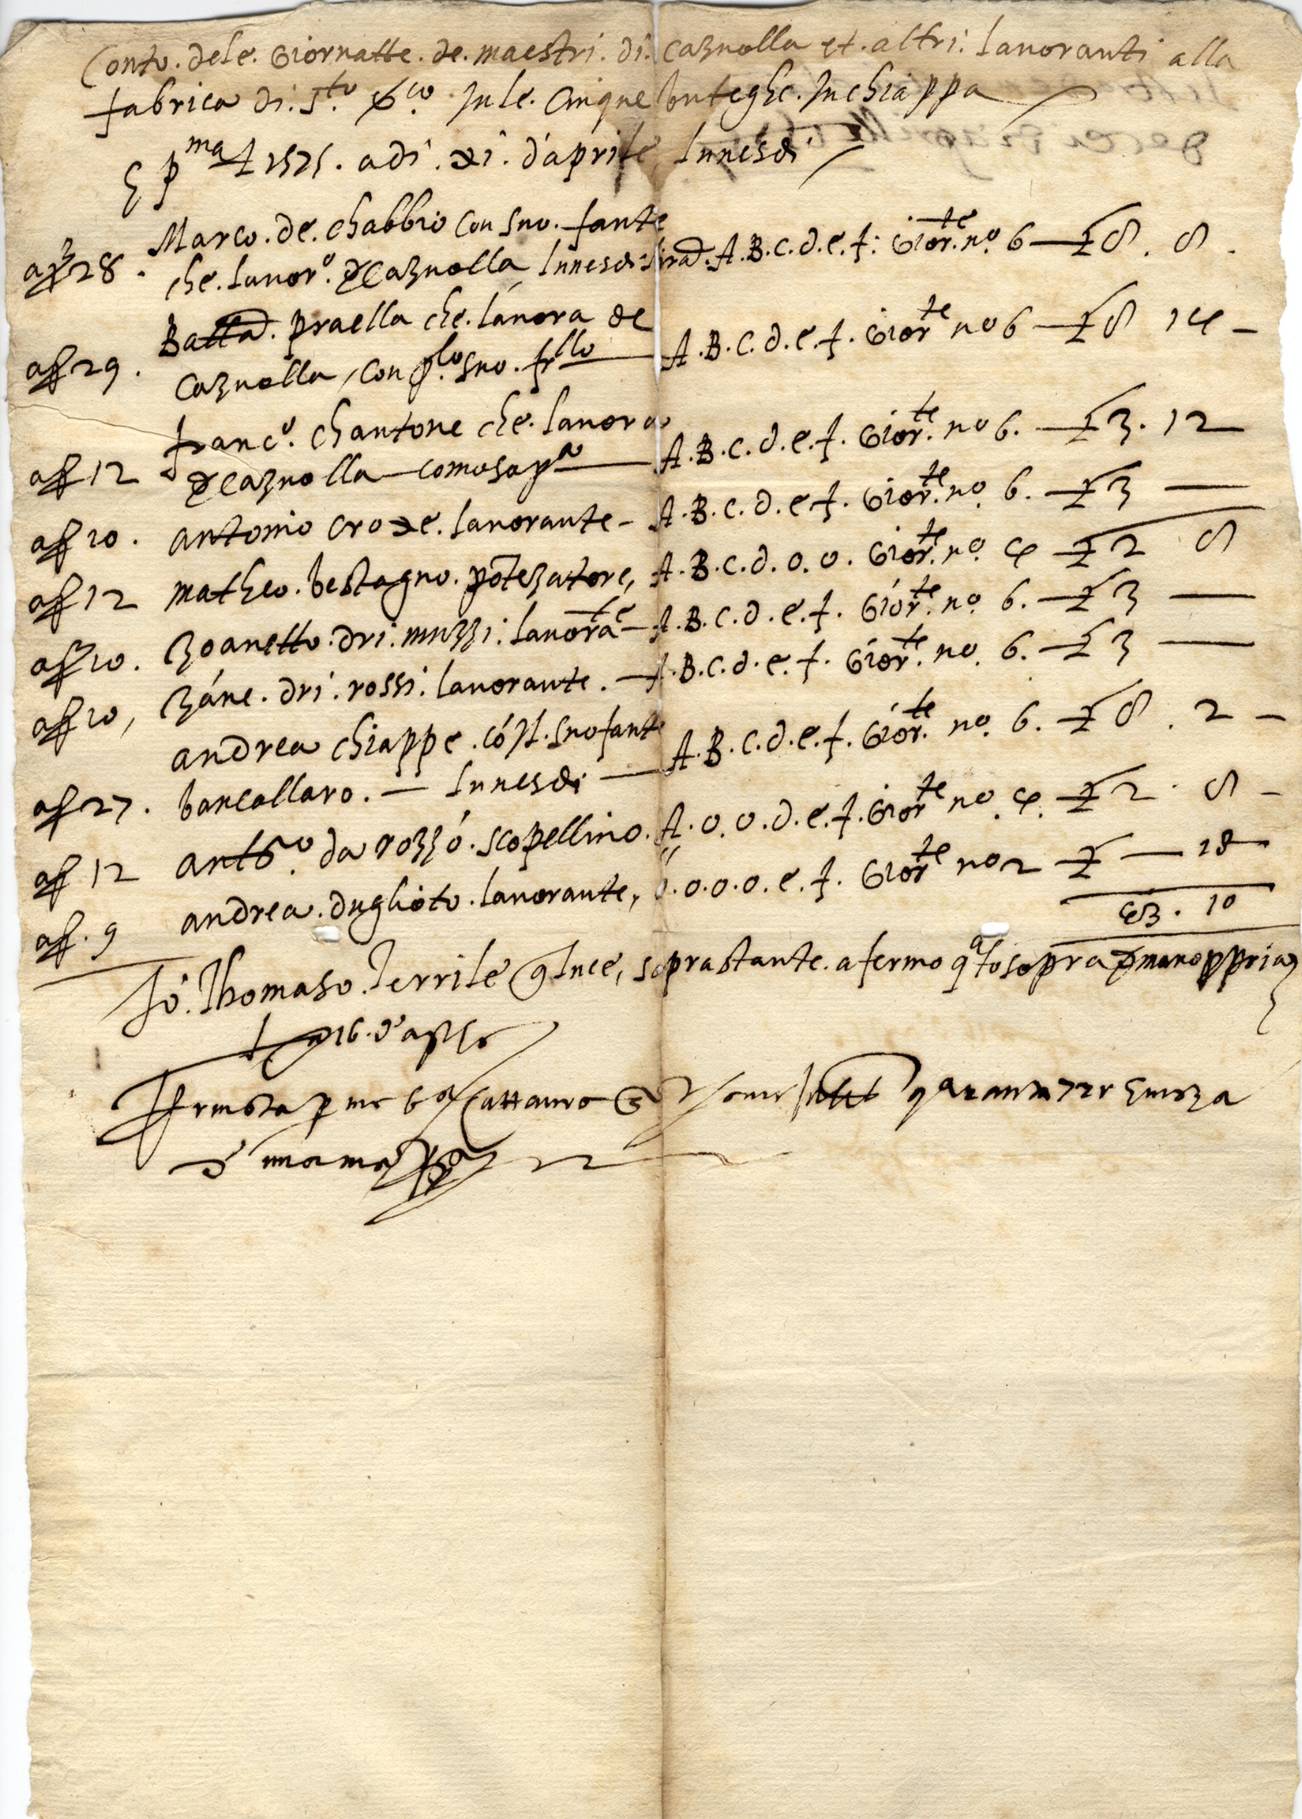 Conto. dele. Giornatte. de. maestri. di. cazuolla et. altri. lauoranti alla
fabrica di. s.to Inle. Cinque bonteghe. In chiappa
E p.ma £ 1575. adi. d'aprile lunesdi
Marco. de. chabbio con suo. fante
a ff 28. che. lauor.o cazuolla lunesdi A. B. c. d. e. f. Gior.te n.o 6 — £ 8. 8.
Batta. praella che. lauora de
a ff 29. cazuolla, con suo. fr.llo — A. B. c. d. e. f. Gior.te no 6 — £ 8 14 —
franc.o chantone che. lauora
a ff 12 cazuolla — come sopra — A. B. c. d. e. f. Gior.te no 6. — £ 3. 12
a ff 10. antonio croxe. lauorante — A. B. c. d. e f. Gior.te no. 6. — £ 3 —
a ff 12 matheo. bestagno. A. B. c. d. o. o. Gior.te no. 4 £ 2 8
a ff 10. zoanetto. dri. muzzi. lauora.te — A. B. c. d. e. f. Giór.te no. 6. — £ 3 —
a ff 10, záne. dri. rossi. lauorante. — A. B. c. d. e. f. Giór.te no. 6. — £ 3 —
andrea chiappe. suo fante
a ff 27. bancallaro. — lunesdi — A. B. c. d. e. f. Giór.te no. 6. — £ 8. 2 —
a ff 12 da rozzó. scopellino. A. o. o. d. e. f. Gior.te no. 4. £ 2. 8 —
a ff. 9 andrea. duglioto. lauorante, o. o. o. o. e. f. Gior.te no 2 £ — 18
43. 10
Io. Thomaso. Terrile soprastante. afermo q.to sopra mano ppria
16. d'aple
Cattaneo quaranta